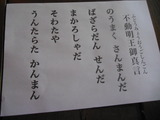 不動明王御真言
のうまく さんまんだ
ばざらだん せんだ
まかろしゃだ
そわたや
うんたらた かんまん